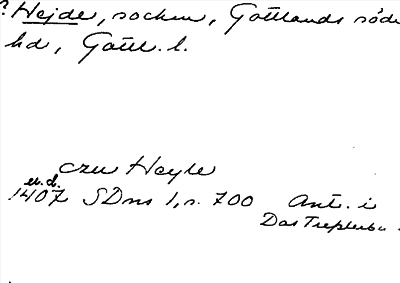 ? Hejde, socken, Gottlands söde
hd, Gottl. l.
czu Heyle
u.d.
1407 SDns 1, s. 700 Ant. i
Das Tresslerbu